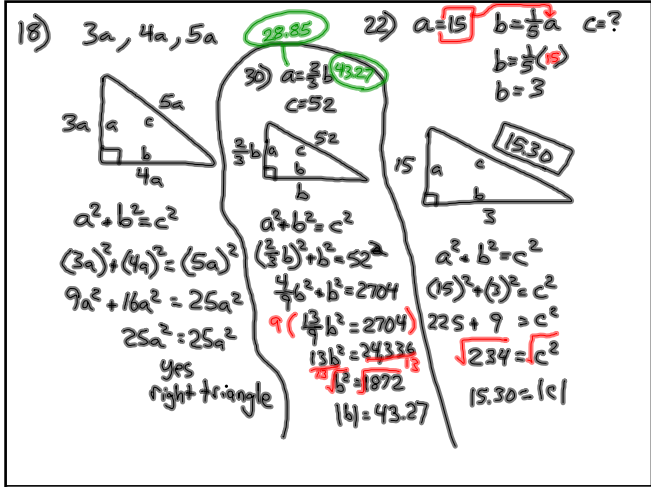 18) 3a, 4a, 5a
3a
a
c
5a
b
4a
a²+b²=c²
(3a)²+(4a)²=(5a)²
9a²+16a²=25a²
25a²=25a²
yes
right triangle
28.85
30) a=2/3b 43.27
c=52
2/3b
a
c
52
b
b
a²+b²=c²
(2/3b)²+b²=52²
4/9b²+b²=2704
9(13/9b²=2704)
13b²=24,336
13 13
√b²=√1872
|b|=43.27
22) a=15 b=1/5a c=?
b=1/5(15)
b=3
15.30
15
a
c
b
3
a²+b²=c²
(15)²+(3)²=c²
225+9=c²
√234=√c²
15.30=|c|